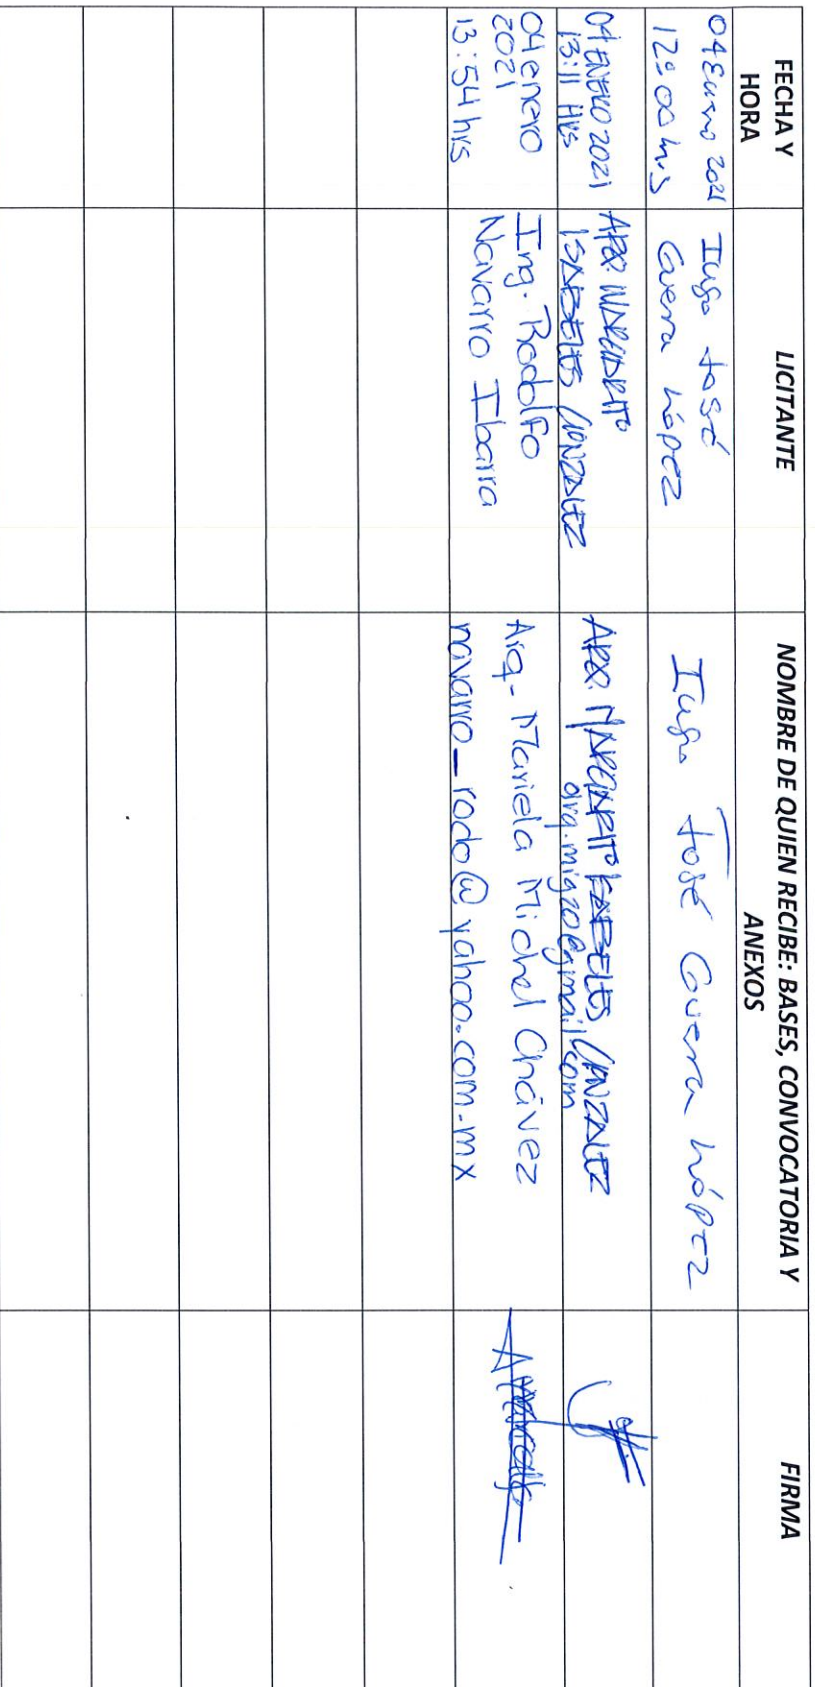 FECHA Y
HORA
LICITANTE
NOMBRE DE QUIEN RECIBE: BASES, CONVOCATORIA Y
ANEXOS
FIRMA
04 Enero 2021
12:00 hrs
José
Guerra López
José Guerra López
04 ENERO 2021
13:11 Hrs
ARQ. MARGARITO
ISABELES GONZALEZ
ARQ. MARGARITO ISABELES GONZALEZ
04 enero
2021
13:54 hrs
Ing. Rodolfo
Navarro Ibarra
Arq. Mariela Michel Chávez
navarro_rodo@yahoo.com.mx